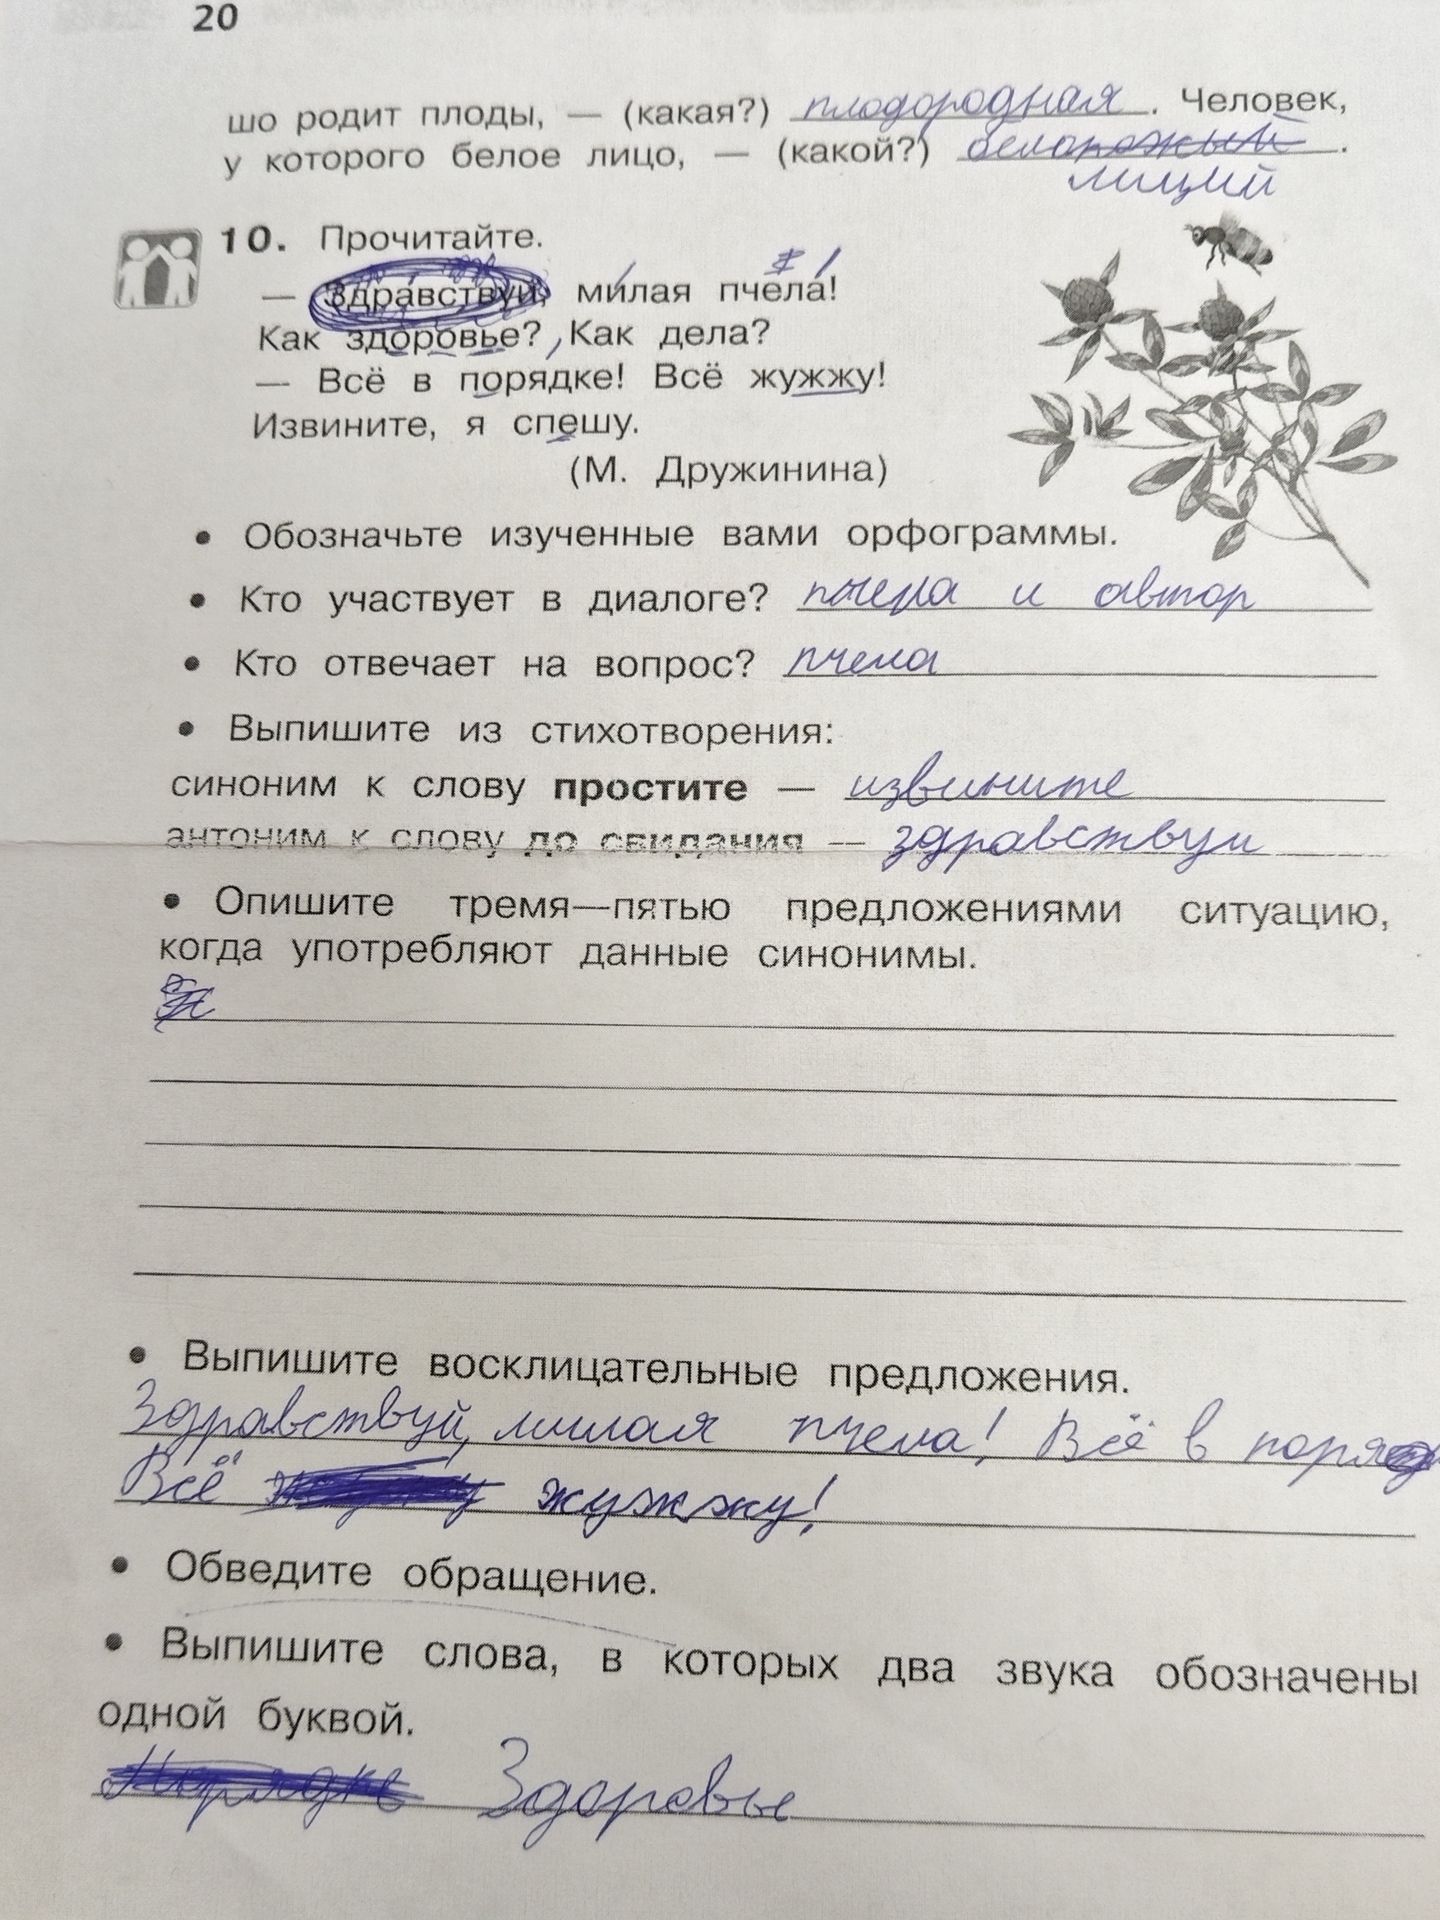 20
шо родит плоды, — (какая?) плодородная. Человек,
у которого белое лицо, — (какой?) белорожый.
лиций
10. Прочитайте.
— Здравствуй, милая пчела!
Как здоровье? Как дела?
— Всё в порядке! Всё жужжу!
Извините, я спешу.
(М. Дружинина)
• Обозначьте изученные вами орфограммы.
• Кто участвует в диалоге? пчела и автор
• Кто отвечает на вопрос? пчела
• Выпишите из стихотворения:
синоним к слову простите — извините
антоним к слову до свидания — здравствуи
• Опишите тремя—пятью предложениями ситуацию,
когда употребляют данные синонимы.
• Выпишите восклицательные предложения.
Здравствуй, милая пчела! Всё в поряд
Всё жужжу!
• Обведите обращение.
• Выпишите слова, в которых два звука обозначены
одной буквой.
Здоровье